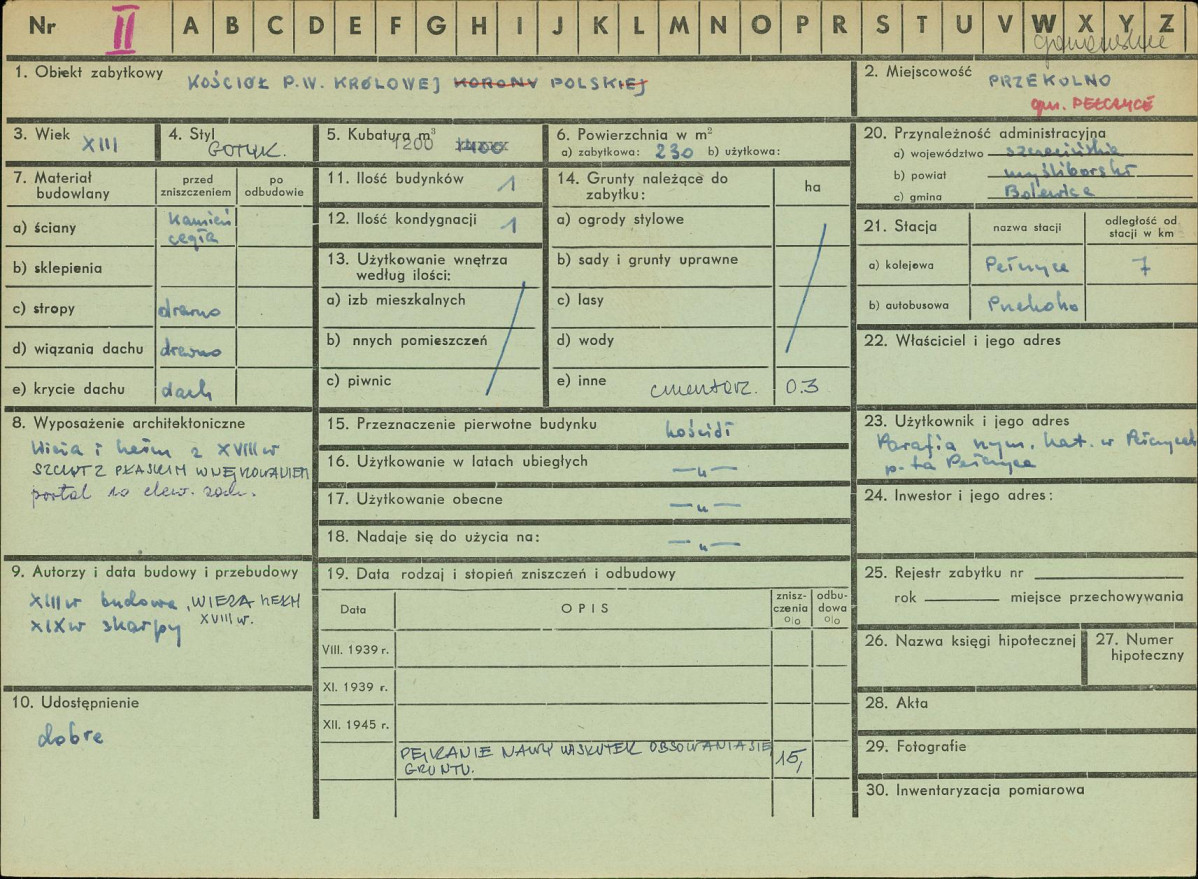 Nr II A B C D E F G H I J K L M N O P R S T U V W X Y Z
1. Obiekt zabytkowy KOŚCIÓŁ P.W. KRÓLOWEJ KORONY POLSKIEJ
2. Miejscowość PRZEKOLNO
gm. PEŁCZYCE
3. Wiek XIII
4. Styl GOTYK.
5. Kubatura m³ 1200 1400
6. Powierzchnia w m²
a) zabytkowa: 230 b) użytkowa:
7. Materiał budowlany
przed zniszczeniem
po odbudowie
a) ściany kamień cegła
b) sklepienia
c) stropy drewno
d) wiązania dachu drewno
e) krycie dachu dach
8. Wyposażenie architektoniczne
Wieża i hełm z XVIII w
SZCZYT Z PŁASKIM WNĘKOWANIEM
portal w elew. zach.
9. Autorzy i data budowy i przebudowy
XIII w budowa, WIEŻA HEŁM
XVIII w.
XIX w skarpy
10. Udostępnienie
dobre
11. Ilość budynków 1
12. Ilość kondygnacji 1
13. Użytkowanie wnętrza
według ilości:
a) izb mieszkalnych
b) nnych pomieszczeń
c) piwnic
14. Grunty należące do
zabytku:
ha
a) ogrody stylowe
b) sady i grunty uprawne
c) lasy
d) wody
e) inne cmentarz. 0.3
15. Przeznaczenie pierwotne budynku kościół
16. Użytkowanie w latach ubiegłych —„—
17. Użytkowanie obecne —„—
18. Nadaje się do użycia na: —„—
19. Data rodzaj i stopień zniszczeń i odbudowy
Data
OPIS
znisz-
czenia
%
odbu-
dowa
%
VIII. 1939 r.
XI. 1939 r.
XII. 1945 r.
PĘKANIE NAWY WSKUTEK OBSOWANIA SIĘ 15,
GRUNTU.
20. Przynależność administracyjna
a) województwo szczecińskie
b) powiat myśliborski
c) gmina Bolewice
21. Stacja
nazwa stacji
odległość od
stacji w km
a) kolejowa Pełczyce 7
b) autobusowa
22. Właściciel i jego adres
23. Użytkownik i jego adres
Parafia rzym. kat. w Pełczycach
p-ta Pełczyce
24. Inwestor i jego adres:
25. Rejestr zabytku nr
rok miejsce przechowywania
26. Nazwa księgi hipotecznej
27. Numer
hipoteczny
28. Akta
29. Fotografie
30. Inwentaryzacja pomiarowa